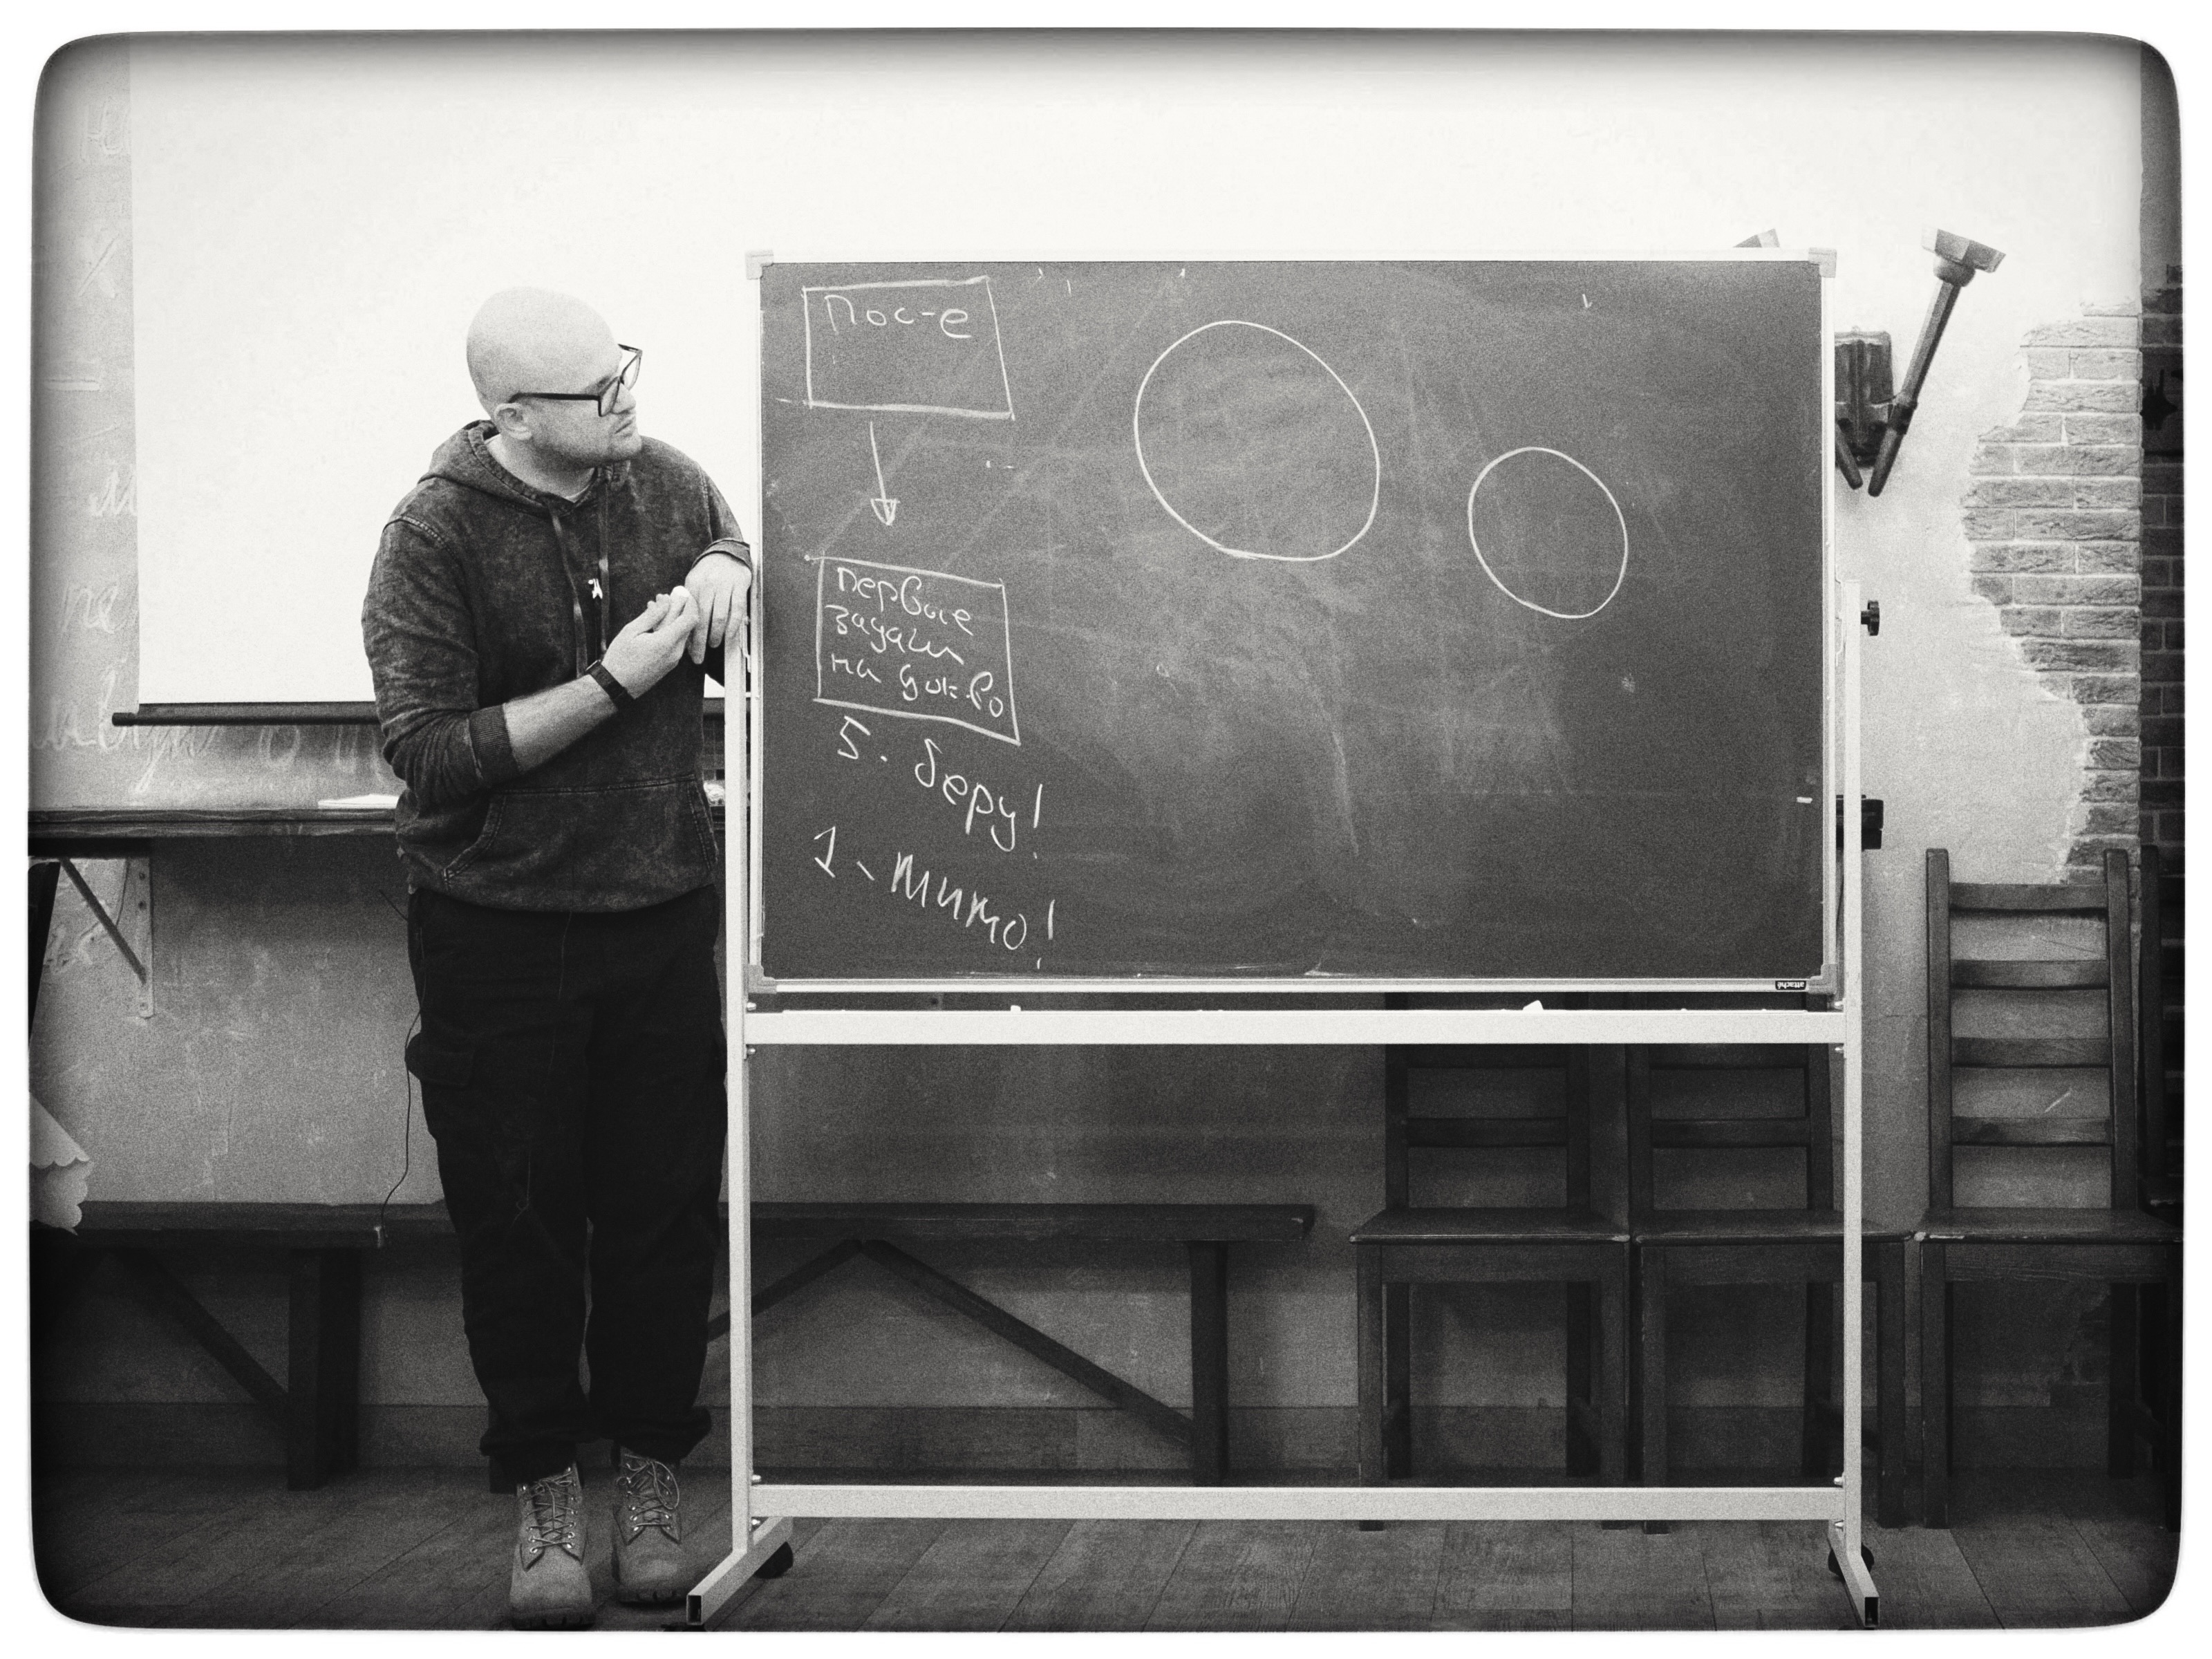 Пос-е
первые
задачи
на док-во
5. беру!
1. мимо!
attaché